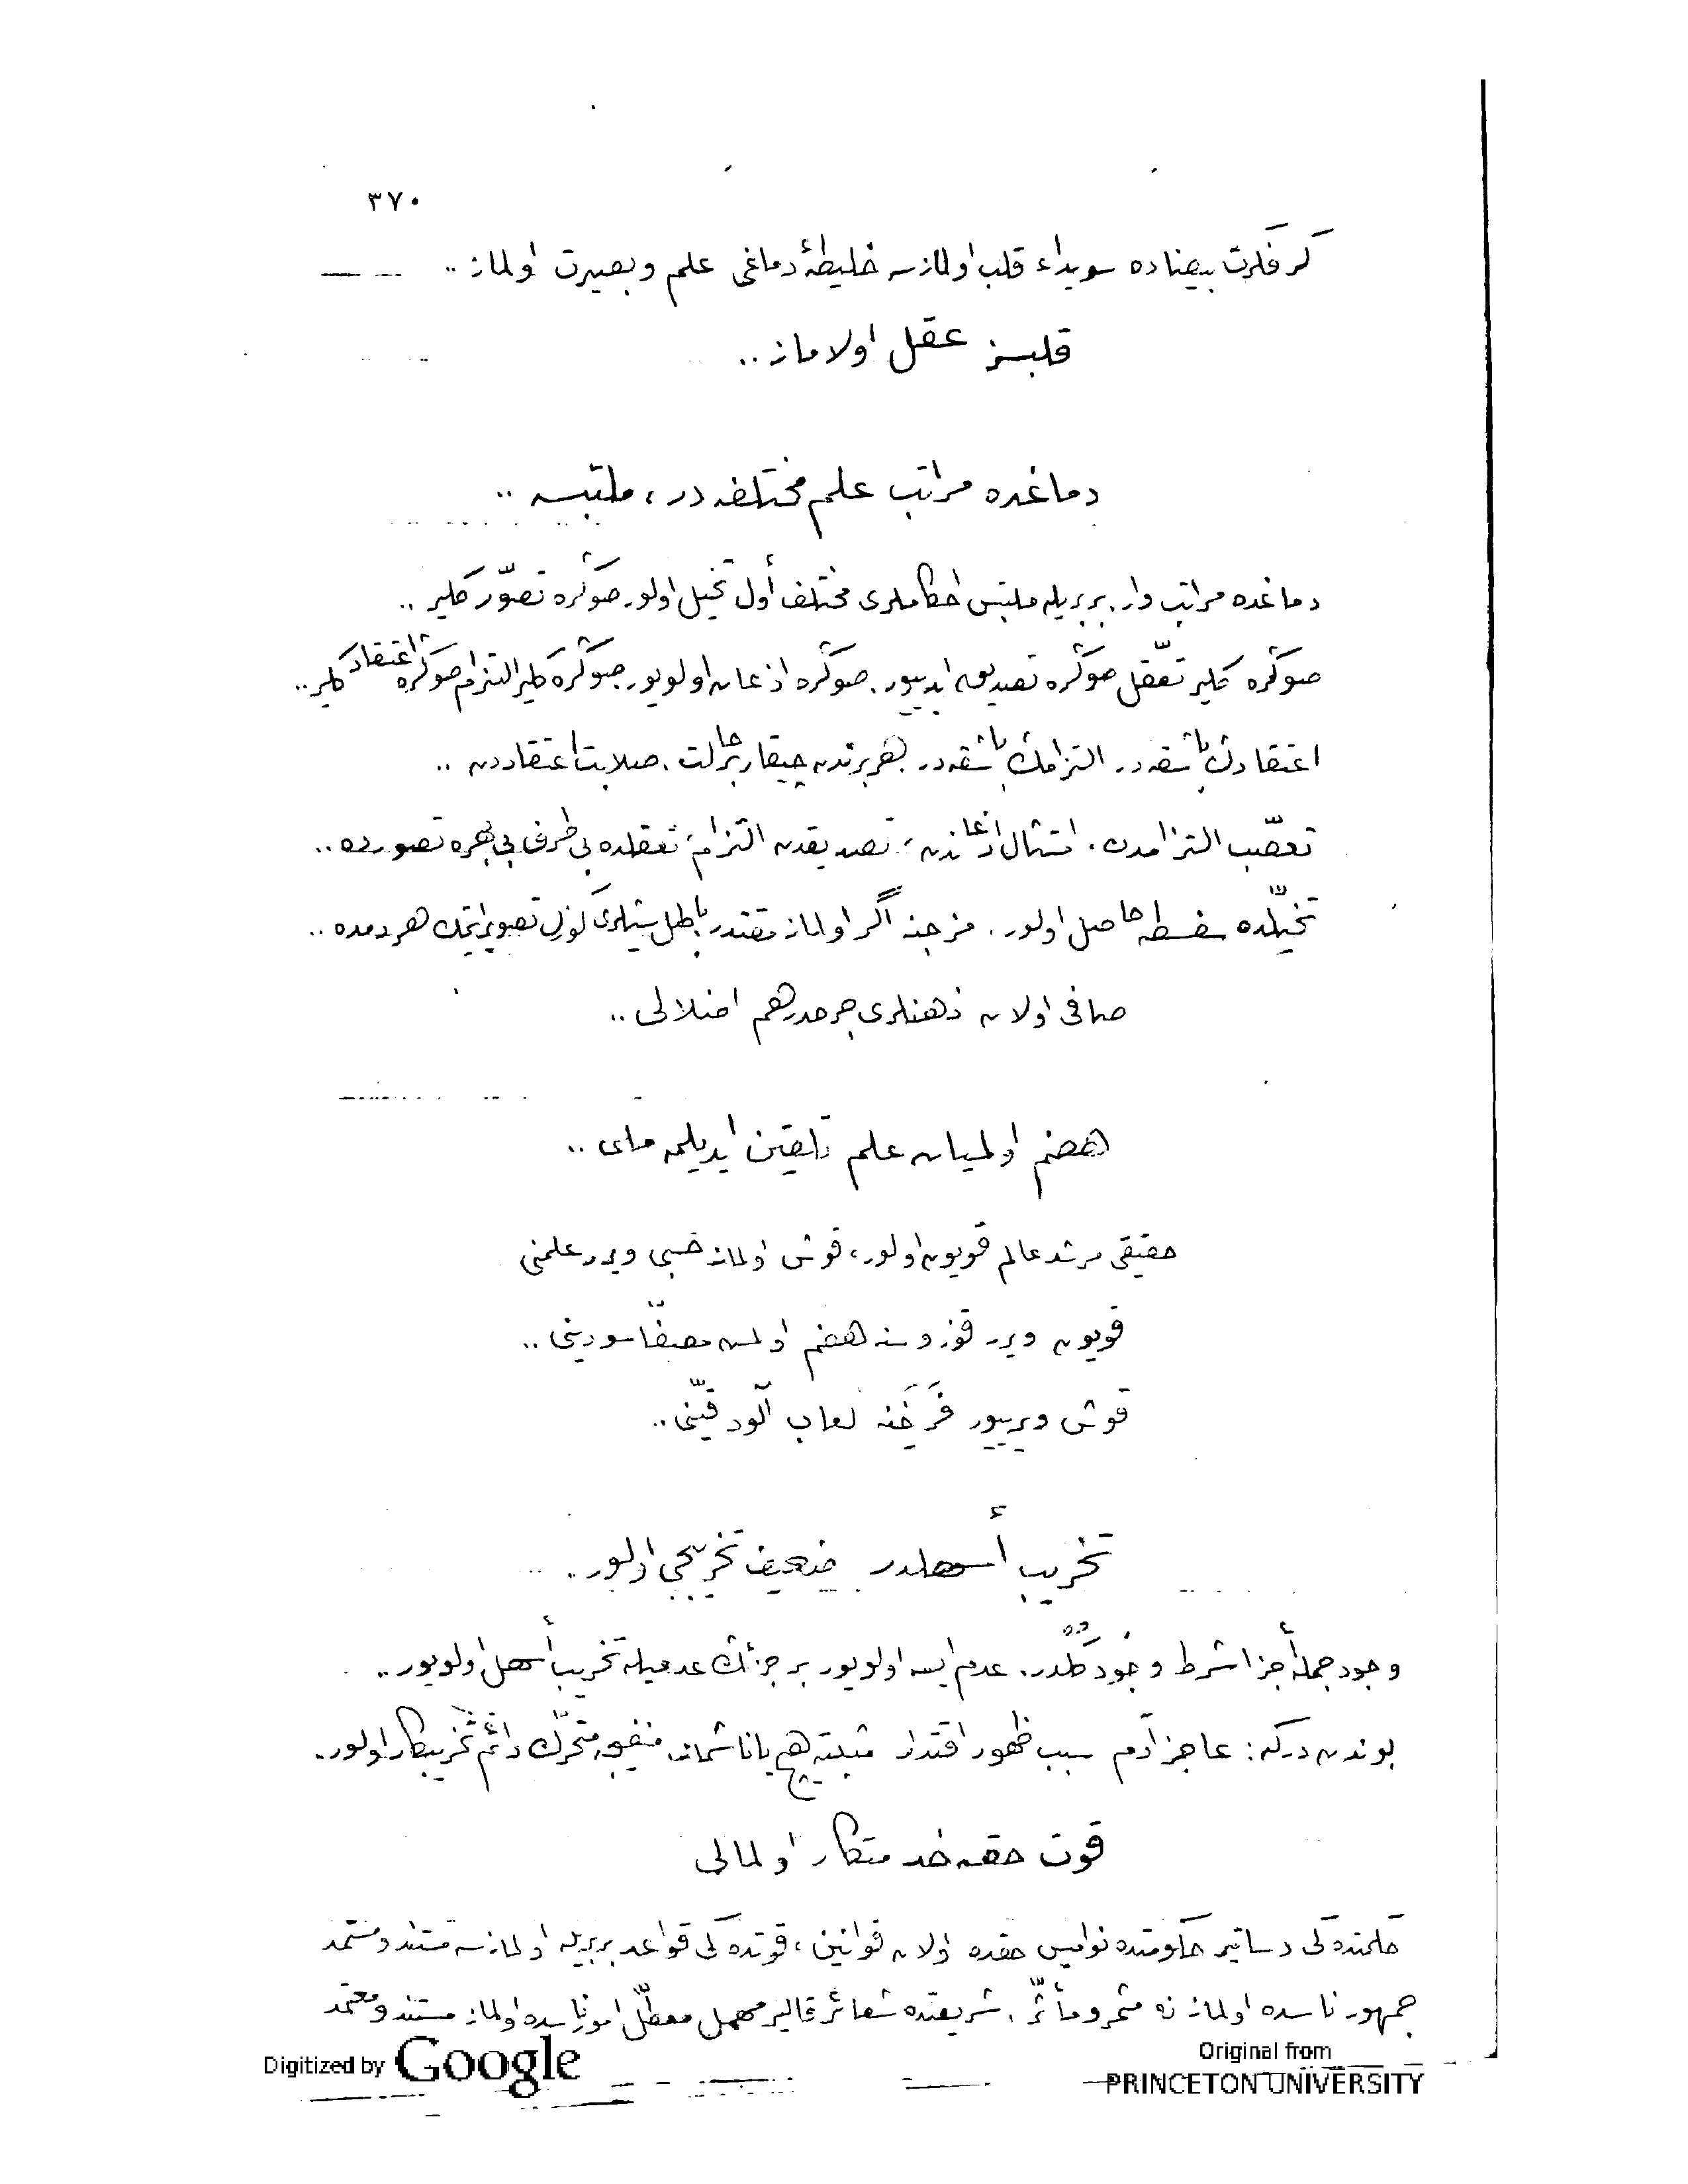 ٣٧٠
گر فكرت بيضاده سويداء قلب اولمازسه خليطۀ دماغى علم وبصيرت اولماز ..
قلبسز عقل اولاماز ..
دماغده مراتب علم مختلفه در ، ملتبسه ..
دماغده مراتب وار. بربريله ملتبس احكاملرى مختلف أول تخيل اولور صوڭره تصوّر گلير ..
صوڭره گلير تعقّل صوڭره تصديق ايدييور. صوڭره اذعان اولويور. صوڭره گلير التزام صوڭره اعتقاد گلير ..
اعتقادڭ باشقه در التزامڭ باشقه در. هر برندن چيقار بر حالت. صلابت اعتقاددن ..
تعصّب التزامدن. امتثال اذعاندن ، تصديقدن التزام ، تعقلده بى طرف بى بهره تصورده ..
تخيّلده سفسطه حاصل اولور. مزجنه اگر اولماز مقتدر. باطل شيلرى گوزل تصوير ايتمك هر دمده ..
صافى اولان ذهنلرى جرحدر هم اضلالى ..
هضم اولميان علم تلقين ايديلمه ملى ..
حقيقى مرشد عالم قويون اولور ، قوش اولماز حسبى ويرر علمنى
قويون ويرر قوزوسنه هضم اولمش مصفّا سودينى ..
قوش ويرييور فَرخَنه لعاب آلود قيّنى ..
تخريب أسهلدر ضعيف تخريبجى اولور ..
وجود جملۀ أجزا شرط وجُودِ كُلدر. عدم ايسه اولويور بر جزئڭ عدميله تخريب أسهل اولويور ..
بوندن دركه : عاجز آدم سبب ظهور اقتدار مثبته هيچ ياناشماز. منفيجه متحرّك دائم تخريبكار اولور.
قوت حقه خدمتكار اولمالى
حكمتده كى دساتير حكومتده نواميس حقده اولان قوانين ، قوتده كى قواعد بربريله اولمازسه مستند ومستمد
جمهور ناسده اولماز نه مثمر ومأثّر. شريعتده شعائر قالير مهمل معطّل امور ناسده اولماز مستند ومعتمد
Digitized by Google
Original from
PRINCETON UNIVERSITY